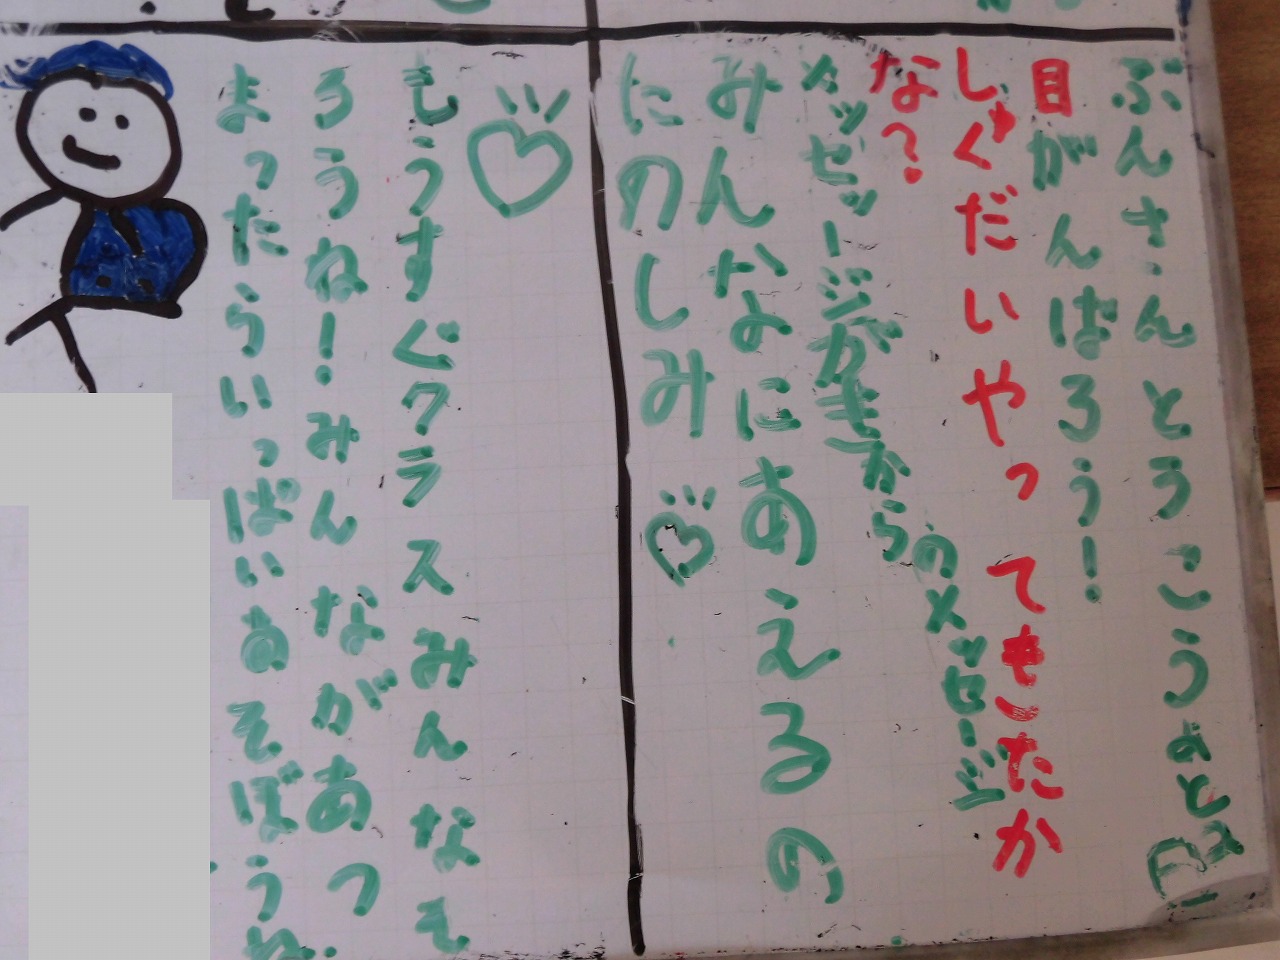 ぶんさんとうこうあと2日
目がんばろう!
しゅくだいやってきたか
な?
メッセージが からのメッセージ
みんなにあえるの
たのしみ
もうすぐクラスみんなそ
ろうね!みんながあつ
まったらいっぱいあそぼうね